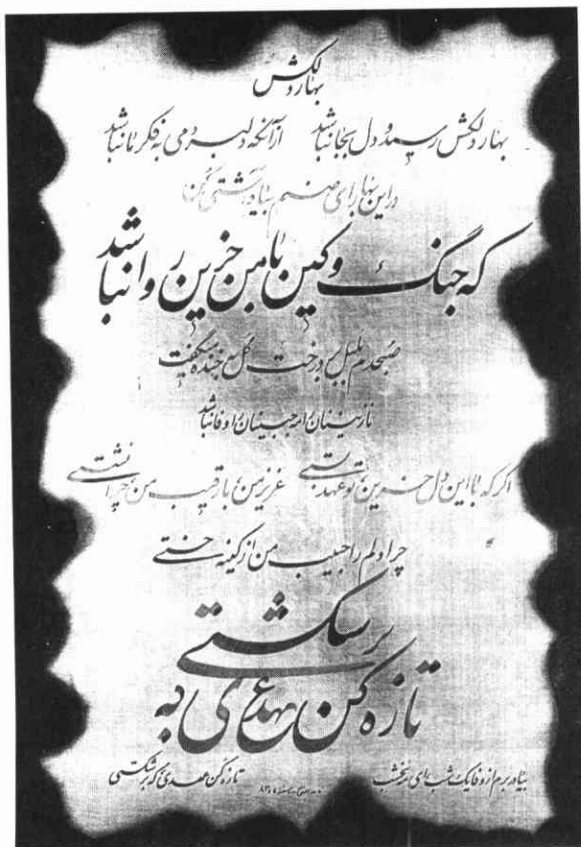 بهار دلکش
بهار دلکش رسید و دل بجا نباشد از آنکه دلبر دمی به فکر ما نباشد
در این بهار ای صنم بیا و آشتی کن
که جنگ و کین با من حزین روا نباشد
صبحدم بلبل بر درخت گل به خنده میگفت
نازنینان را مه جبینان را وفا نباشد
اگر که با این دل حزین تو عهد بستی عزیز من با رقیب من چرا نشستی
چرا دلم را حبیب من از کینه خستی
بر شکستی
تازه کن عهدی که
بیا در برم از وفا یک شب ای مه نخشب تازه کن عهدی که بر شکستی